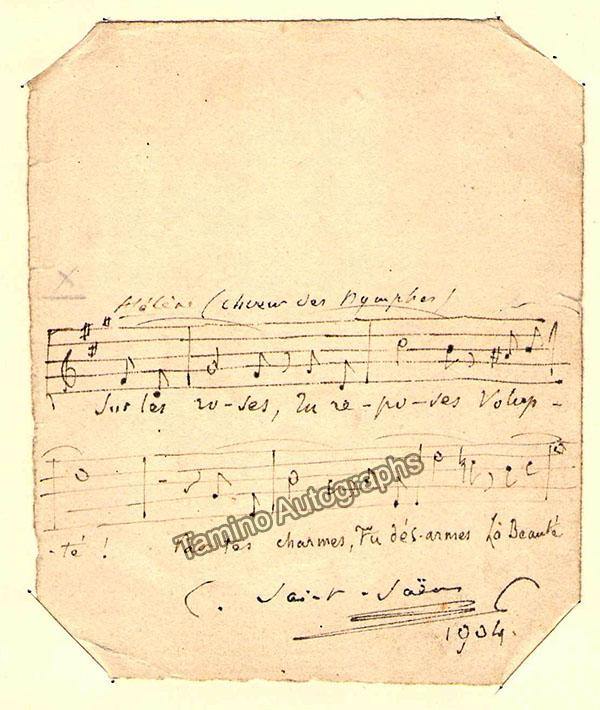 Hélène (chœur des Nymphes)
Sur les ro-ses, Tu re-po-ses Volup-
-té ! Par tes charmes, Tu dés-armes La Beauté
Tamino Autographs
C. Saint-Saëns
1904.